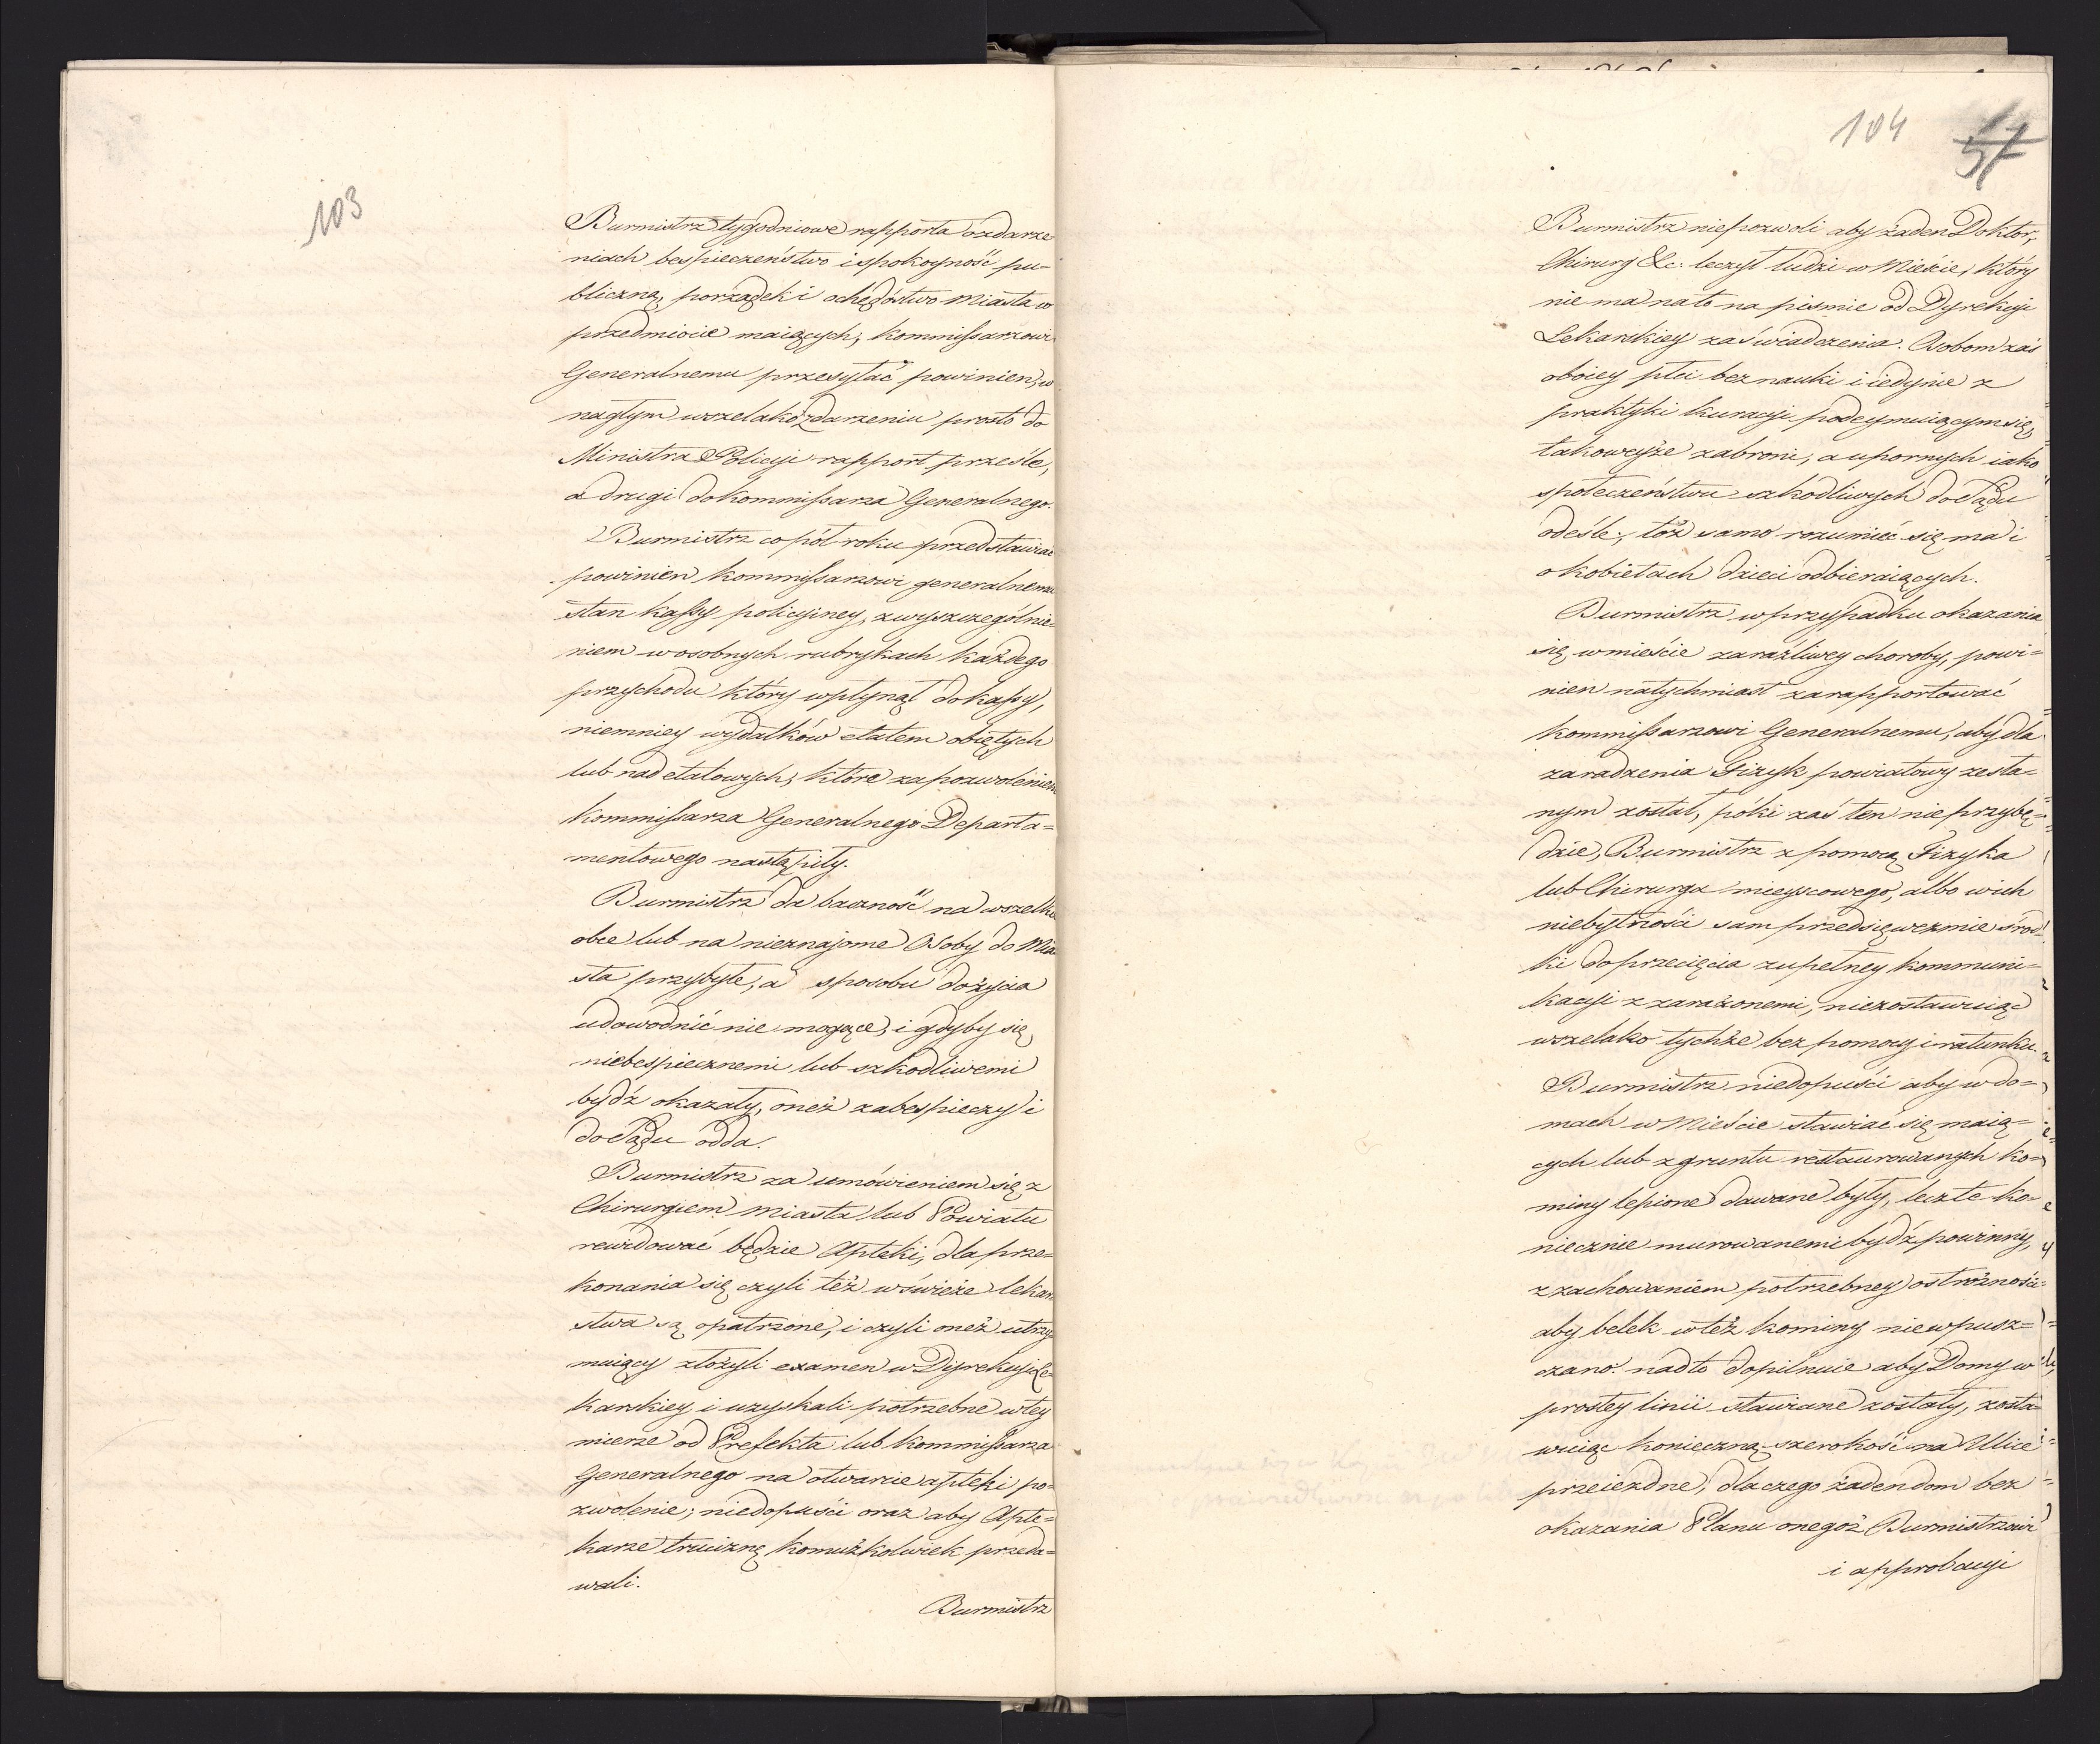 103
Burmistrz tygodniowe rapporta o zdarze
niach bespieczeństwo i spokoyność pu=
bliczną, porządek i ochędóstwo Miasta w
przedmiocie maiących, kommissarzowi
Generalnemu przesyłać powinien, w
nagłym wszelako zdarzeniu prosto do
Ministra Policyi rapport prześle,
a drugi do kommissarza Generalnego.
Burmistrz co pół roku przedstawiać
powinien kommissarzowi generalnemu
stan kassy policyiney, z wyszczególnie
niem w osobnych rubrykach każdego
przychodu który wpłynął do kassy,
niemniey wydatków etatem obiętych
lub nad etatowych, które za pozwoleniem
kommissarza Generalnego Departa=
mentowego nastąpiły.
Burmistrz da baczność na wszelkie
obce lub na nieznajome Osoby do Mia
sta przybyłe, a sposobu do życia
udowodnić nie mogące, i gdyby się
niebespiecznemi lub szkodliwemi
bydź okazały, oneż zabespieczy i
do Sądu odda.
Burmistrz za umówieniem się z
Chirurgiem Miasta lub Powiatu
rewidować będzie Apteki, dla prze=
konania się czyli też w świeże lekar
stwa są opatrzone, i czyli oneż utrzy
muiący złożyli examen w Dyrekcyi Le=
karskiey, i uzyskali potrzebne w tey
mierze od Prefekta lub kommissarza
Generalnego na otwarcie apteki po=
zwolenie; niedopuści oraz aby Apte=
karze truciznę komużkolwiek przeda=
wali.
Burmistrz
104
57
Burmistrz niepozwoli aby żaden Doktor,
Chirurg &c: leczył ludzi w Mieście, który
nie ma na to na pismie od Dyrekcyi
Lekarskiey zaświadczenia. Osobom zaś
oboiey płci bez nauki i iedynie z
praktyki kuracyi podeymuiącym się,
takowcyże zabroni, a upornych iako
społeczeństwu szkodliwych do Sądu
odeśle, tóż samo rozumieć się ma i
o kobietach dzieci odbieraiących.
Burmistrz w przypadku okazania
się w mieście zaraźliwey choroby, powi=
nien natychmiast zarapportować
kommissarzowi Generalnemu, aby dla
zaradzenia Fizyk powiatowy zesła=
nym został, póki zaś ten nie przybę=
dzie, Burmistrz z pomocą Fizyka
lub Chirurga mieyscowego, albo w ich
niebytności sam przedsięwezmie środ=
ki do przecięcia zupełney kommuni=
kacyi z zarażonemi, niezostawuiąc
wszelako tychże bez pomocy i ratunku.
Burmistrz niedopuści aby w do=
mach w Mieście stawiać się maią=
cych lub z gruntu restaurowanych ko=
miny lepione dawane były, lecz te ko=
niecznie murowanemi bydź powinny,
z zachowaniem potrzebney ostrożności
aby belek w też kominy niewpusz=
czano. nadto dopilnuie aby Domy w
prostey linii stawiane zostały, zosta=
wuiąc konieczną szerokość na Ulice
przeiezdne, dla czego żaden dom bez
okazania Planu onegoż Burmistrzowi
i approbacyi